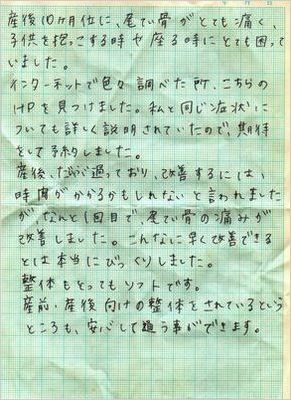 産後10ヶ月位に、尾てい骨がとても痛く、
子供を抱っこする時や座る時にとても困って
いました。
インターネットで色々調べた所、こちらの
HPを見つけました。私と同じ症状に
ついても詳しく説明されていたので、期待
をして予約しました。
産後、だいぶ過っており、改善するには、
時間がかかるかもしれないと言われました
が、なんと1回目で、尾てい骨の痛みが
改善しました。こんなに早く改善できる
とは本当にびっくりしました。
整体もとってもソフトです。
産前・産後向けの整体をされているという
ところも、安心して通う事ができます。